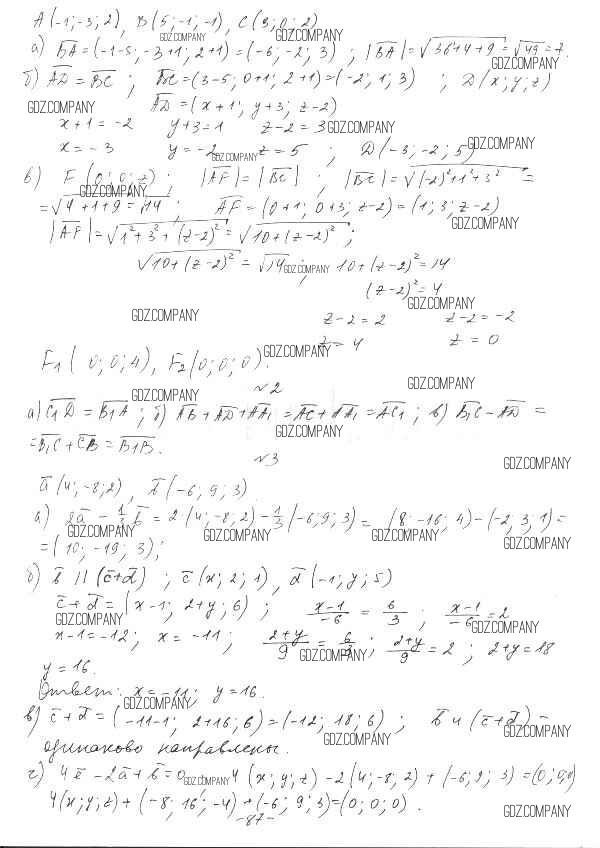 A(-1;-3;2), B(5;-1;-1), C(3;0;2)
GDZ.COMPANY GDZ.COMPANY
а) B̅A̅=(-1-5; -3+1; 2+1)=(-6; -2; 3) ; |B̅A̅|=√36+4+9=√49=7.
GDZ.COMPANY
б) A̅D̅=B̅C̅ ; B̅C̅=(3-5; 0+1; 2+1)=(-2; 1; 3) ; D(x; y; z)
GDZ.COMPANY A̅D̅=(x+1; y+3; z-2)
x+1=-2 y+3=1 z-2=3 GDZ.COMPANY
x=-3 y=-2 GDZ.COMPANY z=5 ; D(-3; -2; 5) GDZ.COMPANY
в) F(0; 0; z) ; |A̅F̅|=|B̅C̅| ; |B̅C̅|=√(-2)²+1²+3² =
GDZ.COMPANY
=√4+1+9=√14 ; A̅F̅=(0+1; 0+3; z-2)=(1; 3; z-2)
GDZ.COMPANY
|A̅F̅|=√1²+3²+(z-2)²=√10+(z-2)² ;
√10+(z-2)²=√14 ; GDZ.COMPANY 10+(z-2)²=14
(z-2)²=4
GDZ.COMPANY GDZ.COMPANY
z-2=2 z-2=-2
z=4 z=0
GDZ.COMPANY
F₁(0;0;4), F₂(0;0;0).
№2 GDZ.COMPANY
GDZ.COMPANY
а) C̅₁D̅=B̅₁A̅ ; б) A̅B̅+A̅D̅+A̅A̅₁=A̅C̅+A̅A̅₁=A̅C̅₁ ; в) B̅₁C̅-A̅D̅ =
GDZ.COMPANY
=B̅₁C̅+C̅B̅=B̅₁B̅.
№3 GDZ.COMPANY
a̅(4;-8;2), b̅(-6; 9; 3)
а) 2a̅ - 1/3 b̅=2(4;-8;2)-1/3(-6;9;3)= (8; -16; 4)-(-2; 3; 1)=
GDZ.COMPANY GDZ.COMPANY GDZ.COMPANY GDZ.COMPANY
=(10; -19; 3);
б) b̅ || (c̅+d̅) ; c̅(x; 2; 1), d̅(-1; y; 5)
c̅+d̅=(x-1; 2+y; 6) ; (x-1)/-6 = 6/3 ; (x-1)/-6=2
GDZ.COMPANY GDZ.COMPANY
x-1=-12; x=-11 ; (2+y)/9=6/3 ; (2+y)/9=2 ; 2+y=18
GDZ.COMPANY
y=16.
Ответ: x=-11; y=16.
GDZ.COMPANY
в) c̅+d̅=(-11-1; 2+16; 6)=(-12; 18; 6) ; b̅ и (c̅+d̅) -
GDZ.COMPANY GDZ.COMPANY
одинаково направлены.
г) 4e̅-2a̅+b̅=0 GDZ.COMPANY 4(x; y; z)-2(4;-8;2)+(-6; 9; 3)=(0;0;0)
4(x; y; z)+(-8; 16; -4)+(-6; 9; 3)=(0; 0; 0).
GDZ.COMPANY
-87-